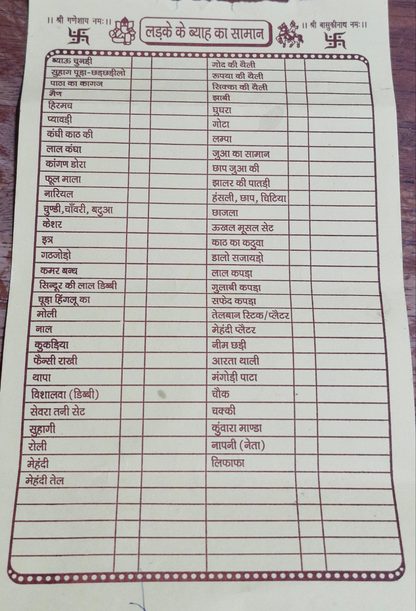 ।। श्री गणेशाय नमः।।
लड़के के ब्याह का सामान
।। श्री बासुकीनाथ नमः।।
ब्याऊ चुनड़ी
सुहाग पूड़ा-छड़छड़ीलो
पाठा का कागज
मेण
हिरमच
प्यावड़ी
कंघी काठ की
लाल कंघा
कांगण डोरा
फूल माला
नारियल
चुण्डी,चाँवरी, बटुआ
केशर
इत्र
गठजोड़ो
कमर बन्ध
सिन्दूर की लाल डिब्बी
चूड़ा हिंगलू का
मोली
नाल
कुकड़िया
फैन्सी राखी
थापा
विशालवा (डिब्बी)
सेवरा तनी सेट
सुहागी
रोली
मेहंदी
मेहंदी तेल
गोद की थैली
रूपया की थैली
सिक्का की थैली
झाबी
घुघरा
गोटा
लम्पा
जुआ का सामान
छाप जुआ की
झालर की पातड़ी
हंसली, छाप, चिटिया
छाजला
ऊखल मूसल सेट
काठ का कठुवा
डालो सजायड़ो
लाल कपड़ा
गुलाबी कपड़ा
सफेद कपड़ा
तेलबान स्टिक/प्लैटर
मेहंदी प्लैटर
नीम छड़ी
आरता थाली
मंगोड़ी पाटा
चौक
चक्की
कुंवारा माण्डा
नापनी (नेता)
लिफाफा